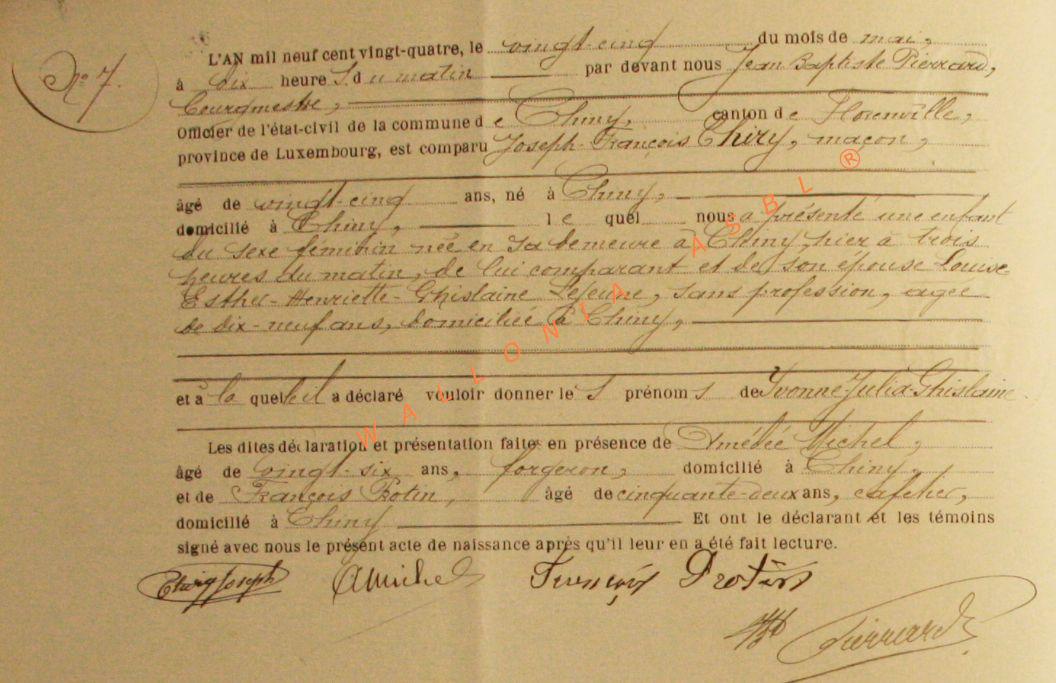 N° 7.
L'AN mil neuf cent vingt-quatre, le vingt-cinq du mois de mai,
à dix heures du matin par devant nous Jean Baptiste Pierrard,
bourgmestre,
Officier de l'état-civil de la commune de Chiny, canton de Florenville,
province de Luxembourg, est comparu Joseph-François Chiry, maçon,
âgé de vingt-cinq ans, né à Chiny,
domicilié à Chiny, lequel nous a présenté une enfant
du sexe féminin née en sa demeure à Chiny, hier à trois
heures du matin, de lui comparant et de son épouse Louise-
Esther-Henriette-Ghislaine Lejeune, sans profession, agée
de dix-neuf ans, domiciliée à Chiny,
et à laquelle il a déclaré vouloir donner les prénoms de Yvonne-Julia-Ghislaine
Les dites déclaration et présentation faites en présence de Amédée Michel,
âgé de vingt-six ans, forgeron, domicilié à Chiny,
et de François Protin, âgé de cinquante-deux ans, cafetier,
domicilié à Chiny Et ont le déclarant et les témoins
signé avec nous le présent acte de naissance après qu'il leur en a été fait lecture.
Chiry Joseph AMichel François Protin
Pierrard
WALLONIA ASBL ®